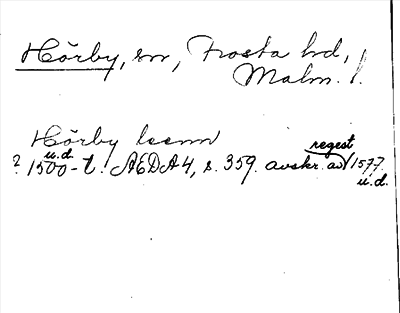 Hörby, sn, Frosta hd,
Malm. l.
Hörby leenn
regest
u.d.
? 1500-t. AEDA4, s. 359. avskr. av 1577.
u.d.